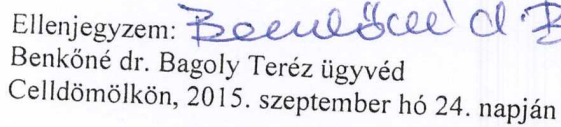 Ellenjegyzem: Benkőné d. B
Benkőné dr. Bagoly Teréz ügyvéd
Celldömölkön, 2015. szeptember hó 24. napján